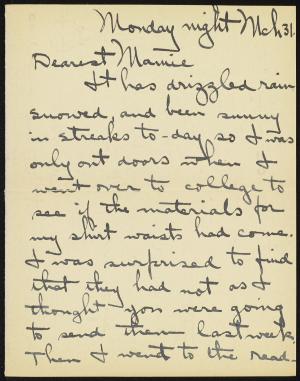 Monday night Mch 31.
Dearest Mamie
It has drizzled rain
snowed, and been sunny
in streaks to-day so I was
only out doors when I
went over to college to
see if the materials for
my shirt waists had come.
I was surprised to find
that they had not as I
thought you were going
to send them last week.
Then I went to the read-